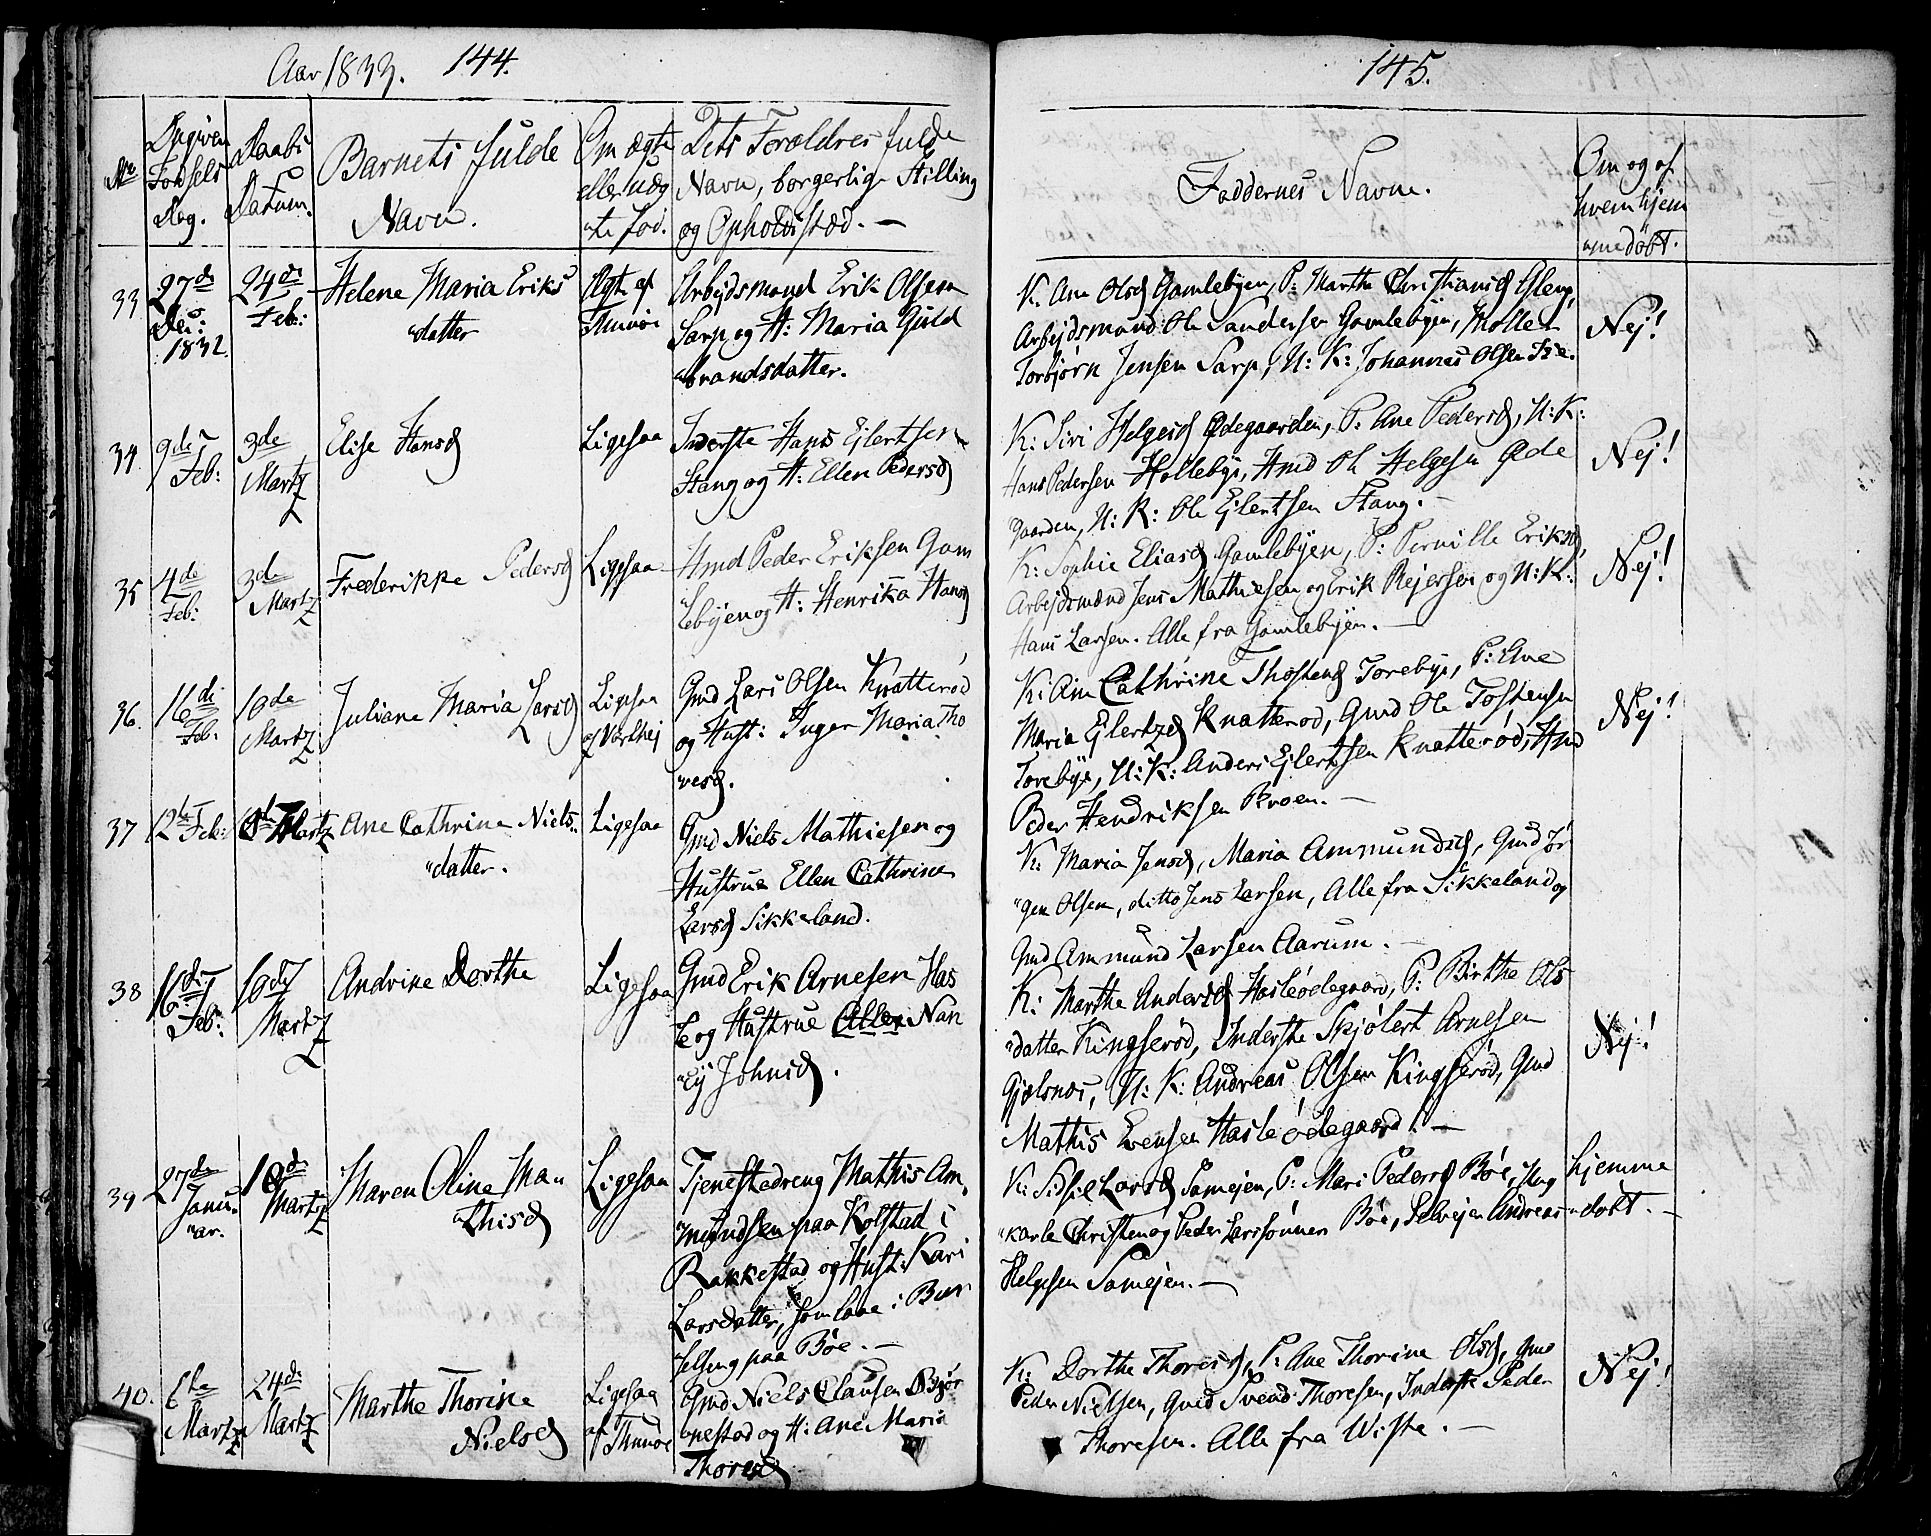 Aar 1833. 144.
No
Angiven Fødsels Dag.
Daabs Datum.
Barnets fulde Navn.
Om ægte eller uæg te fød.
Dets Forældres fulde Navn, borgerlige Stilling og Opholdsstæd. —
33
27de Dec: 1832.
24de Feb:
Helene Maria Eriks
datter
Ægte af Thunøe
Arbejdsmand Erik Olsen
Sarp og H: Maria Guld
brandsdatter.
34
9de Feb:
3de Martz
Elise Hansd
Ligesaa
Inderste Hans Ejlertsen
Stang og H: Ellen Pedersd
35
4de Feb:
3de Martz
Frederikke Pedersd
Ligesaa
Hmd Peder Eriksen Gam
lebyen og H: Henrika Hansd
36.
16de Feb:
10de Martz
Juliane Maria Larsd
Ligesaa
Gmd Lars Olsen Knatterød
og Hust: Inger Maria Tho
resd.
37
12te Feb:
Martz
Ane Cathrine Niels
datter.
Ligesaa
Gmd Niels Mathiesen og
Hustrue Ellen Cathrine
Larsd Sikkeland.
38
16de Feb:
10de Martz
Andrine Dorthe
Ligesaa
Gmd Erik Arnesen Has
le og Hustrue Nan
cy Johnsd.
39
27de Janu
ar.
10de Martz
Maren Oline Ma
thisd
Ligesaa
Tjenestedreng Mathis Am
mundsen paa Kolstad i
Rakkestad og Hust: Kari
Larsdatter, som laae i Bar
selseng paa Bøe. —
40.
6te Martz
24de Martz
Marthe Thorine
Nielsd
Ligesaa af Thunøe
Gmd Niels Clausen Bjør
nestad og H: Ane Maria
Thoresd
145.
Faddernes Navne.
Om og af hvem hjem medøbt.
K. Ane Olsd Gamlebyen, P: Marthe Christiansd Gleng,
Arbejdsmand Ole Sandersen Gamlebyen, Møller
Torbjørn Jensen Sarp, U: K: Johannes Olsen Ise.
Nej!
K: Siri Helgesd Ødegaarden, P: Ane Pedersd, U: K:
Hans Pedersen Hollebye, Hmd Ole Helgesen Øde
gaarden, U: K: Ole Ejlertsen Stang. —
Nej!
K: Sophie Eliasd Gamlebyen, P: Pernille Eriksd,
Arbejdsmænd Jens Mathiesen og Erik Rejersen og U: K:
Hans Larsen. Alle fra Gamlebyen. —
Nej!
K: Ane Cathrine Thostensd Torebye, P: Ane
Maria Ejlertzd Knatterød, Gmd Ole Tostensen
Torebye, U: K: Anders Ejlertsen Knatterød, Hmd
Peder Hendriksen Kroen. —
Nej!
K: Maria Jensd, Maria Ammundsd, Gmd Jør
gen Olsen, ditto Jens Larsen, Alle fra Sikkeland og
Gmd Ammund Larsen Aarum. —
K: Marthe Andersd Hasleødegaard, P: Birthe Ols
datter Kingserød, Inderste Skjølert Arnesen
Gjølsnæs, U: K: Andreas Olsen Kingserød, Gmd
Mathis Evensen Hasleødegaard. —
Nej!
K: Sidsel Larsd Samejen, P: Mari Pedersd Bøe, Ung
karle Christen og Peder Larssønner Bøe, Selvejer Andreas
Helgesen Samejen. —
hjemme døbt. —
K: Dorthe Thoresd, P: Ane Thorine Olsd, Gmd
Peder Nielsen, Gmd Svend Thoresen, Inderste Peder
Thoresen. Alle fra Wiste. —
Nej!